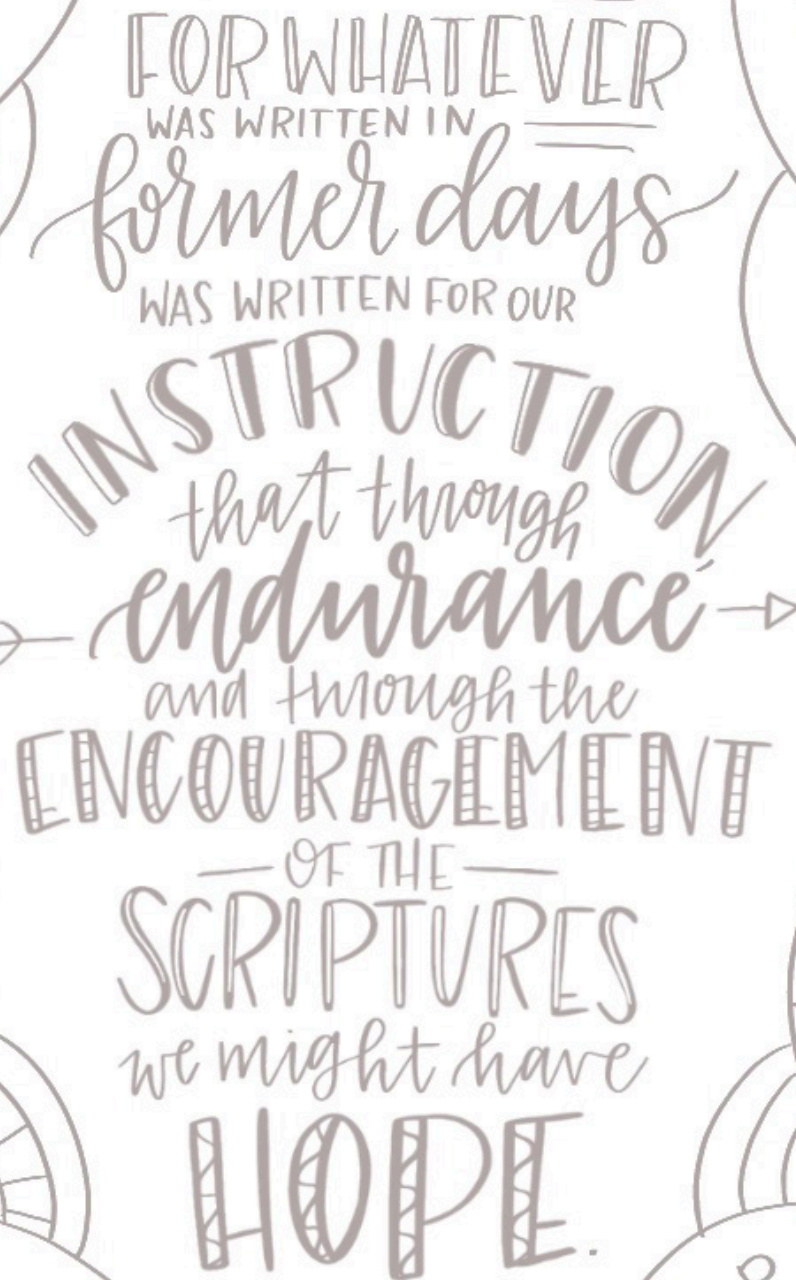 FOR WHATEVER
WAS WRITTEN IN
former days
WAS WRITTEN FOR OUR
INSTRUCTION
that through
endurance
and through the
ENCOURAGEMENT
OF THE
SCRIPTURES
we might have
HOPE.